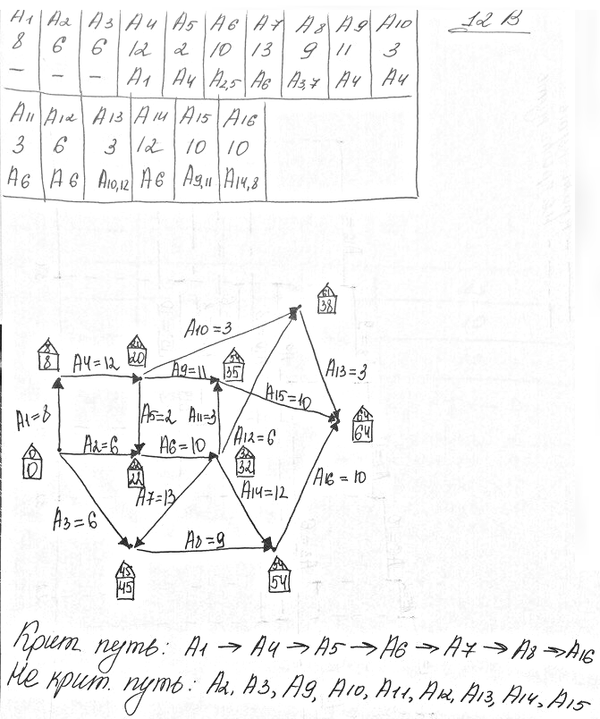 12 В
A1 A2 A3 A4 A5 A6 A7 A8 A9 A10
8 6 6 12 2 10 13 9 11 3
– – – A1 A4 A2,5 A6 A3,7 A4 A4
A11 A12 A13 A14 A15 A16
3 6 3 12 10 10
A6 A6 A10,12 A6 A9,11 A14,8
61
38
A10=3
8
8
A4=12
20
20
A9=11
54
35
A13=3
A15=10
64
64
A1=8
A5=2
A11=3
0
0
A2=6
A6=10
A12=6
22
32
32
A7=13
A14=12
A16=10
A3=6
A8=9
45
45
54
54
Крит. путь: A1 → A4 → A5 → A6 → A7 → A8 → A16
Не крит. путь: A2, A3, A9, A10, A11, A12, A13, A14, A15